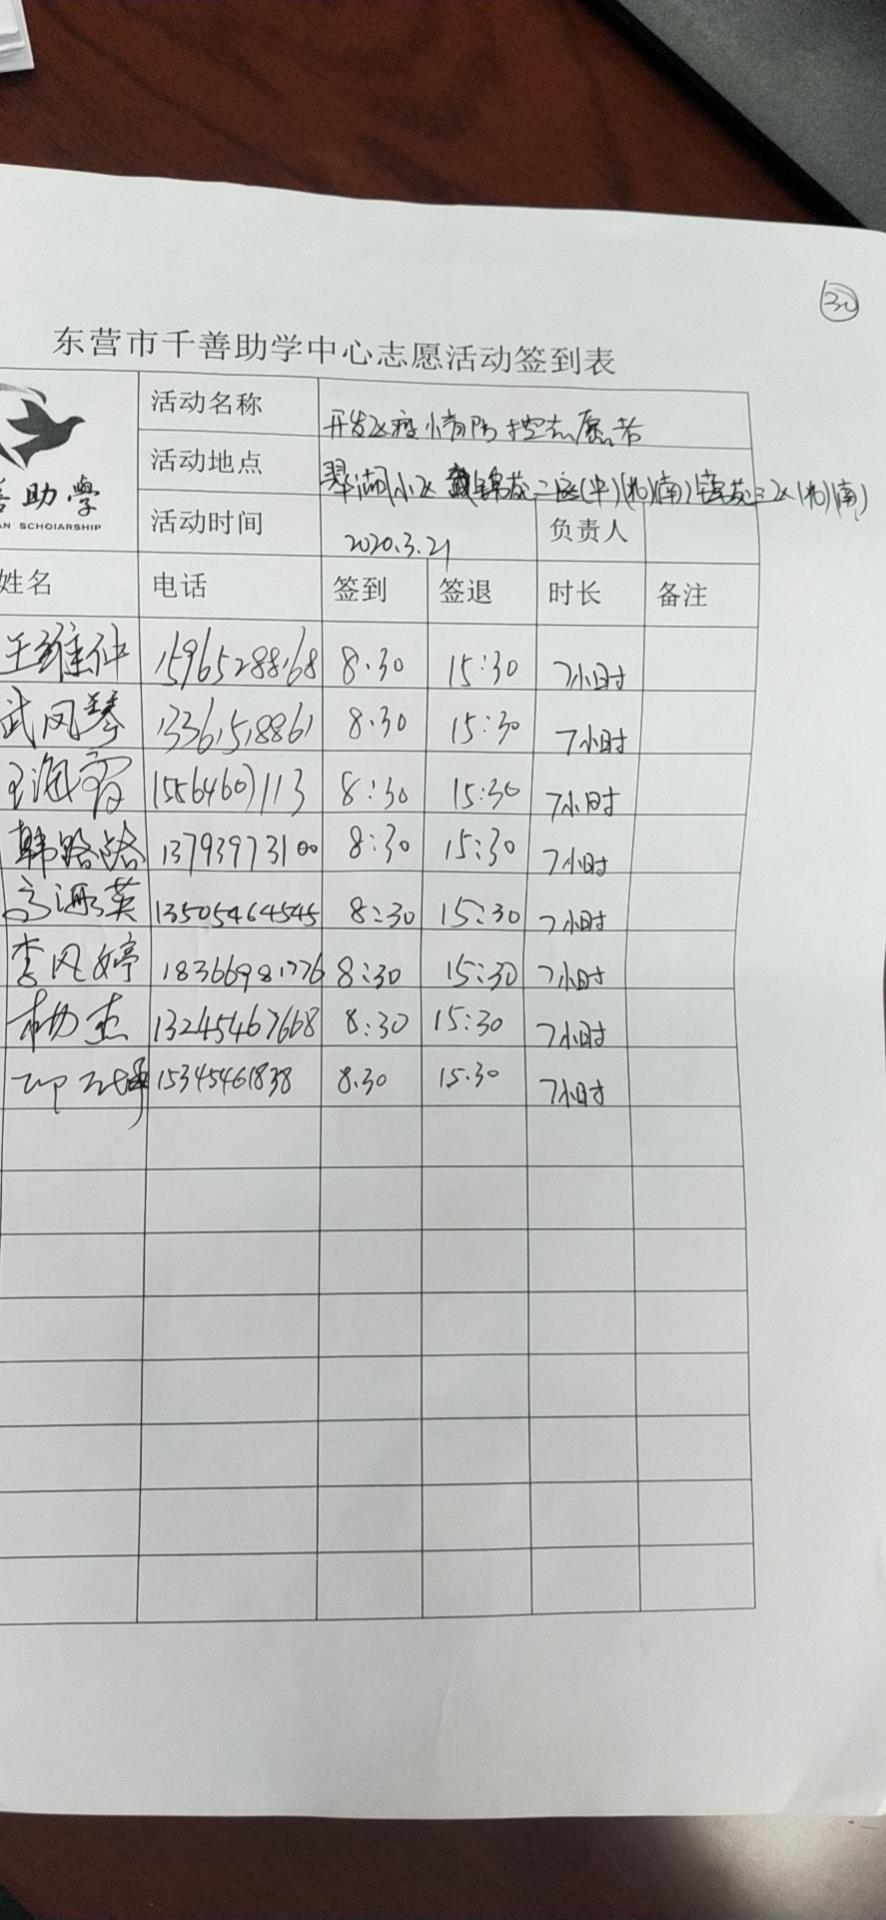 30
东营市千善助学中心志愿活动签到表
善助学
AN SCHOIARSHIP
活动名称 开发区疫情防控志愿者
活动地点 翠湖小区 锦苑二区(中)(北)(南)锦苑三区(北)(南)
活动时间 2020.3.21 负责人
姓名 电话 签到 签退 时长 备注
王维仲 15965288168 8.30 15:30 7小时
武凤琴 13361518861 8.30 15:30 7小时
王海霞 15564607113 8:30 15:30 7小时
韩路路 13793973100 8:30 15:30 7小时
13505464545 8:30 15:30 7小时
李风婷 18366981776 8:30 15:30 7小时
杨杰 13245467668 8:30 15:30 7小时
15345461838 8.30 15.30 7小时